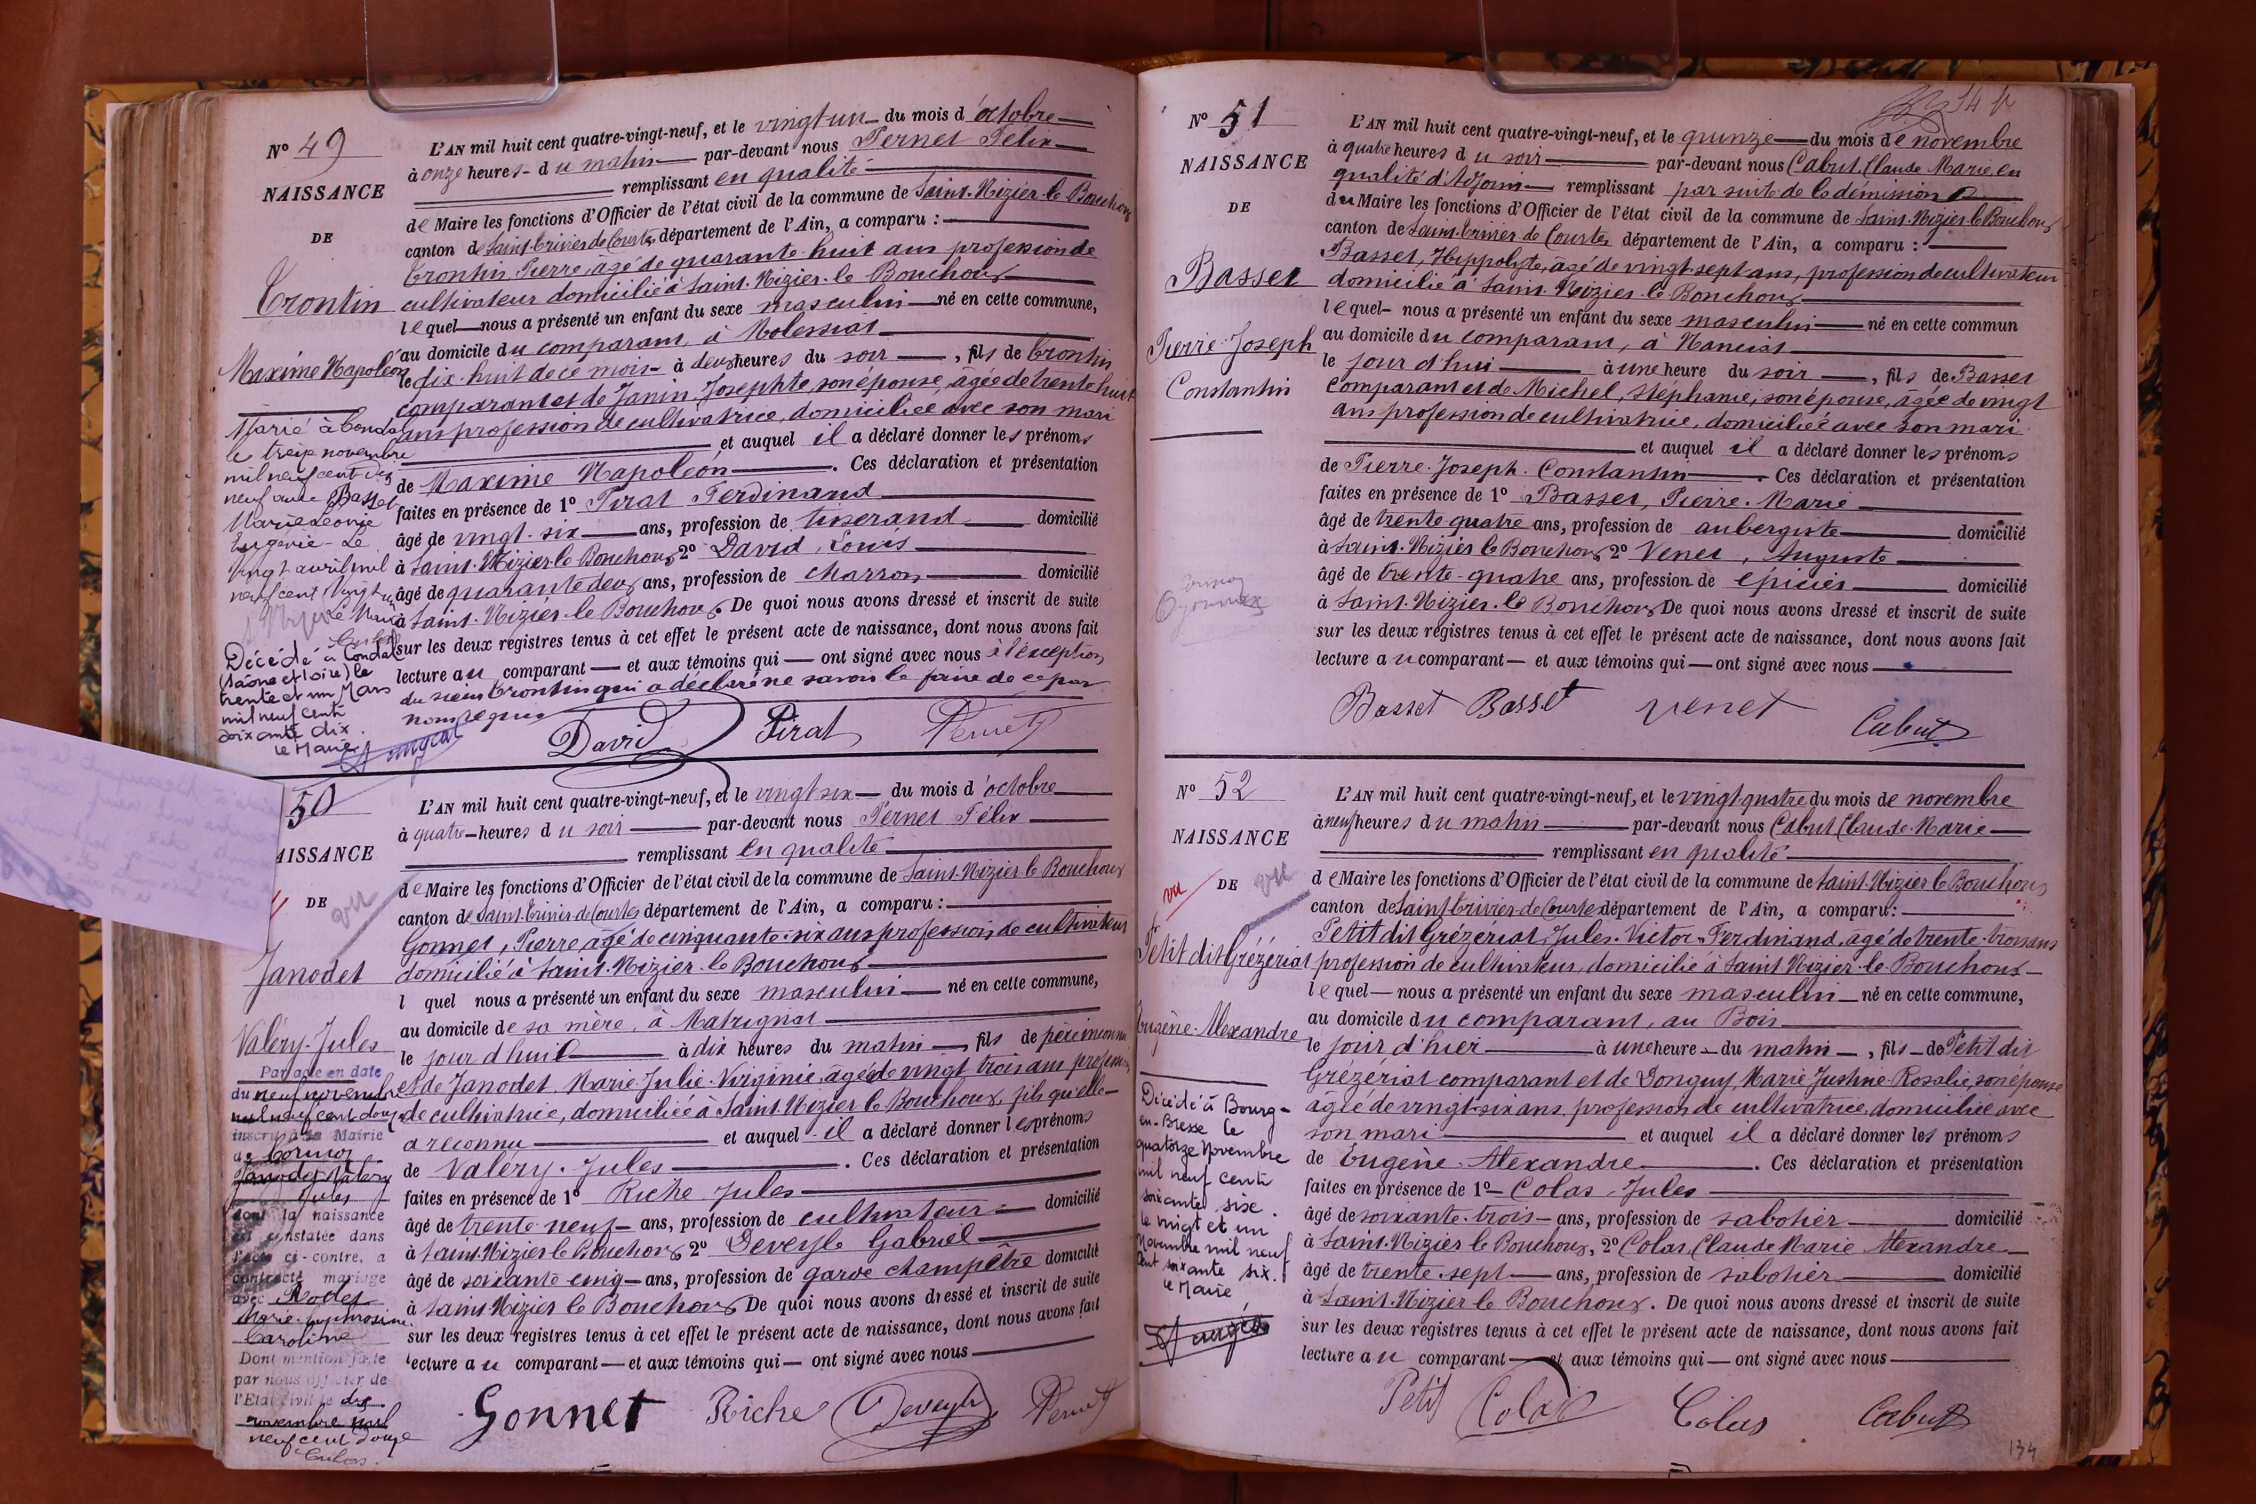 N° 49
NAISSANCE
DE
Trontin
Maxime Napoléon
Marié à Condal
le treize novembre
mil neuf cent dix
neuf avec Basset
Marie Léonie
Eugénie. Le
vingt avril mil
neuf cent vingt
Le Maire
Décédé à Condal
(Saône et Loire) le
trente et un Mars
mil neuf cent
soixante dix.
Le Maire
L'AN mil huit cent quatre-vingt-neuf, et le vingt-un du mois d'octobre
à onze heures du matin par-devant nous Pernet Félix
remplissant en qualité
de Maire les fonctions d'Officier de l'état civil de la commune de Saint-Nizier-le-Bouchoux
canton de Saint-Trivier-de-Courtes, département de l'Ain, a comparu :
Trontin Pierre, âgé de quarante-huit ans profession de
cultivateur domicilié à Saint-Nizier-le-Bouchoux
lequel nous a présenté un enfant du sexe masculin né en cette commune,
au domicile du comparant, à Molessiat
le dix-huit de ce mois à deux heures du soir, fils de Trontin
comparant et de Janin, Josephte, son épouse, âgée de trente huit
ans profession de cultivatrice, domiciliée avec son mari
et auquel il a déclaré donner les prénoms
de Maxime Napoléon. Ces déclaration et présentation
faites en présence de 1° Pirat Ferdinand
âgé de vingt-six ans, profession de tisserand domicilié
à Saint-Nizier-le-Bouchoux 2° David, Louis
âgé de quarante deux ans, profession de charron domicilié
à Saint-Nizier-le-Bouchoux. De quoi nous avons dressé et inscrit de suite
sur les deux registres tenus à cet effet le présent acte de naissance, dont nous avons fait
lecture au comparant et aux témoins qui ont signé avec nous à l'exception
du sieur Trontin qui a déclaré ne savoir le faire de ce par
nous requis
David Pirat Pernet
50
AISSANCE
DE
vu
Janodet
Valéry-Jules
Par acte en date
du neuf novembre
mil neuf cent douze
inscrit à la Mairie
de Cormoz
Janodet Valéry
Jules
dont la naissance
est constatée dans
l'acte ci-contre, a
contracté mariage
avec Rodet
Marie-Euphrosine
Caroline
Dont mention faite
par nous officier de
l'Etat civil le dix
novembre mil
neuf cent douze
L'AN mil huit cent quatre-vingt-neuf, et le vingt-six du mois d'octobre
à quatre heures du soir par-devant nous Pernet Félix
remplissant en qualité
de Maire les fonctions d'Officier de l'état civil de la commune de Saint-Nizier-le-Bouchoux
canton de Saint-Trivier-de-Courtes département de l'Ain, a comparu :
Gonnet, Pierre âgé de cinquante-six ans profession de cultivateur
domicilié à Saint-Nizier-le-Bouchoux
l quel nous a présenté un enfant du sexe masculin né en cette commune,
au domicile de sa mère, à Matrignat
le jour d'hui à dix heures du matin, fils de père inconnu
et de Janodet Marie Julie Virginie, âgée de vingt trois ans profession
de cultivatrice, domiciliée à Saint-Nizier-le-Bouchoux, fils qu'elle
a reconnu et auquel il a déclaré donner les prénoms
de Valéry-Jules. Ces déclaration et présentation
faites en présence de 1° Riche Jules
âgé de trente neuf ans, profession de cultivateur domicilié
à Saint-Nizier-le-Bouchoux 2° Deveyle Gabriel
âgé de soixante cinq ans, profession de garde champêtre domicilié
à Saint-Nizier-le-Bouchoux De quoi nous avons dressé et inscrit de suite
sur les deux registres tenus à cet effet le présent acte de naissance, dont nous avons fait
lecture au comparant et aux témoins qui ont signé avec nous
Gonnet Riche Deveyle Pernet
N° 51
NAISSANCE
DE
Basset
Pierre-Joseph
Constantin
Oyonnax
L'AN mil huit cent quatre-vingt-neuf, et le quinze du mois de novembre
à quatre heures du soir par-devant nous Cabut, Claude Marie en
qualité d'Adjoint remplissant par suite de la démission
du Maire les fonctions d'Officier de l'état civil de la commune de Saint-Nizier-le-Bouchoux
canton de Saint-Trivier-de-Courtes département de l'Ain, a comparu :
Basset, Hippolyte, âgé de vingt-sept ans, profession de cultivateur
domicilié à Saint-Nizier-le-Bouchoux
lequel nous a présenté un enfant du sexe masculin né en cette commun
au domicile du comparant, à Nanciat
le jour d'hui à une heure du soir, fils de Basset
comparant et de Michel, Stéphanie, son épouse, âgée de vingt
ans profession de cultivatrice, domiciliée avec son mari
et auquel il a déclaré donner les prénoms
de Pierre-Joseph-Constantin. Ces déclaration et présentation
faites en présence de 1° Basset, Pierre-Marie
âgé de trente quatre ans, profession de aubergiste domicilié
à Saint-Nizier-le-Bouchoux 2° Venet, Auguste
âgé de trente-quatre ans, profession de épicier domicilié
à Saint-Nizier-le-Bouchoux De quoi nous avons dressé et inscrit de suite
sur les deux registres tenus à cet effet le présent acte de naissance, dont nous avons fait
lecture au comparant et aux témoins qui ont signé avec nous
Basset Basset Venet Cabut
N° 52
NAISSANCE
vu DE vu
Petit dit Grézériat
Eugène-Alexandre
Décédé à Bourg-
en-Bresse le
quatorze Novembre
mil neuf cent
soixante six.
le vingt et un
Novembre mil neuf
cent soixante six.
Le Maire
L'AN mil huit cent quatre-vingt-neuf, et le vingt-quatre du mois de novembre
à neuf heures du matin par-devant nous Cabut Claude-Marie
remplissant en qualité
de Maire les fonctions d'Officier de l'état civil de la commune de Saint-Nizier-le-Bouchoux
canton de Saint-Trivier-de-Courtes département de l'Ain, a comparu :
Petit dit Grézériat, Jules-Victor-Ferdinand, âgé de trente-trois ans
profession de cultivateur, domicilié à Saint-Nizier-le-Bouchoux
lequel nous a présenté un enfant du sexe masculin né en cette commune,
au domicile du comparant, au Bois
le jour d'hier à une heure du matin, fils de Petit dit
Grézériat comparant et de Donguy, Marie Justine Rosalie, son épouse
âgée de vingt-six ans, profession de cultivatrice, domiciliée avec
son mari et auquel il a déclaré donner les prénoms
de Eugène-Alexandre. Ces déclaration et présentation
faites en présence de 1° Colas, Jules
âgé de soixante-trois ans, profession de sabotier domicilié
à Saint-Nizier-le-Bouchoux, 2° Colas, Claude Marie Alexandre
âgé de trente-sept ans, profession de sabotier domicilié
à Saint-Nizier-le-Bouchoux. De quoi nous avons dressé et inscrit de suite
sur les deux registres tenus à cet effet le présent acte de naissance, dont nous avons fait
lecture au comparant et aux témoins qui ont signé avec nous
Petit Colas Colas Cabut
134